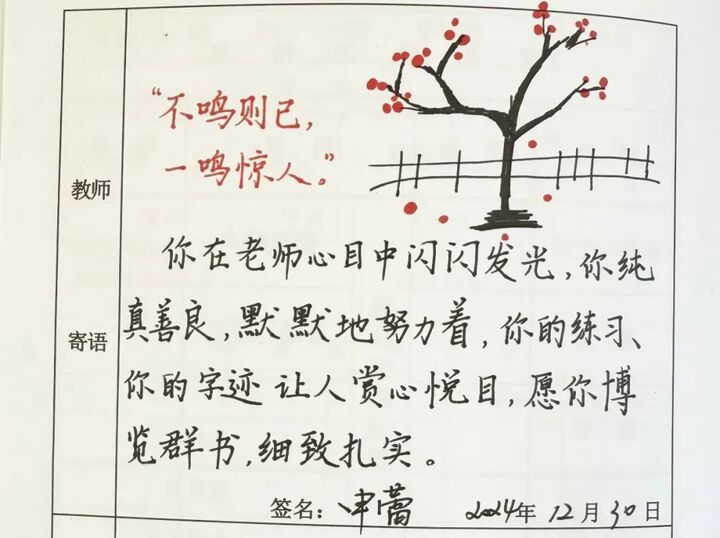 "不鸣则已,
一鸣惊人。"
教师
寄语
你在老师心目中闪闪发光,你纯
真善良,默默地努力着,你的练习、
你的字迹让人赏心悦目,愿你博
览群书,细致扎实。
签名:申蕾 2024年12月30日